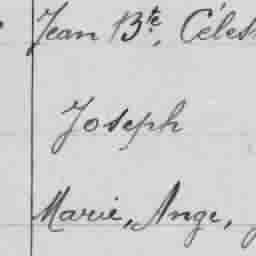 Jean Bte, Céles
Joseph
Marie, Ange,